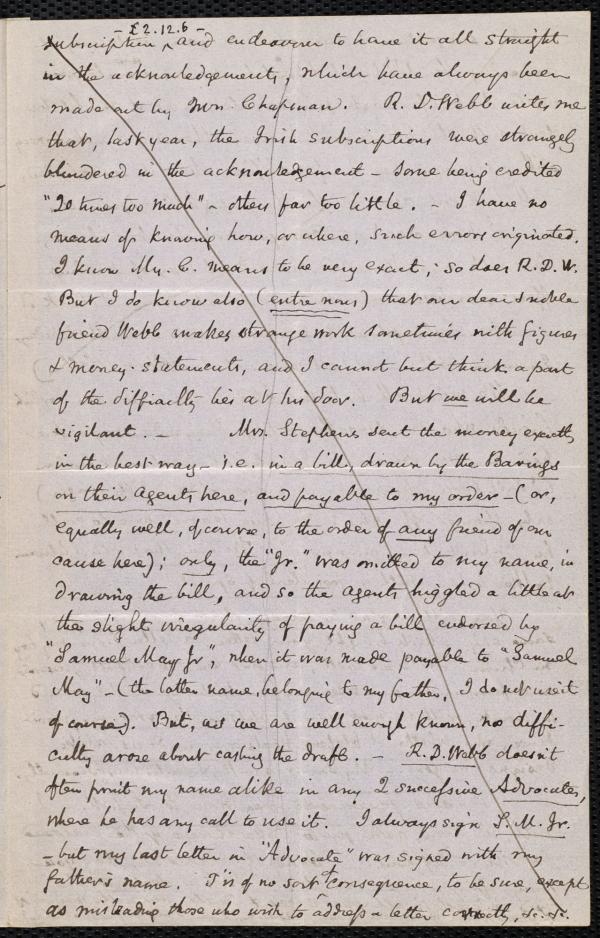 - £2.12.6 -
subscription, and endeavour to have it all straight
in the acknowledgements, which have always been
made out by Mrs. Chapman. R. D. Webb writes me
that, last year, the Irish subscriptions were strangely
blundered in the acknowledgement - some being credited
"20 times too much" - others far too little. - I have no
means of knowing how, or where, such errors originated.
I know Mrs. C. means to be very exact; so does R. D. W.
But I do know also (entre nous) that our dear & noble
friend Webb makes strange work sometimes with figures
& money-statements, and I cannot but think a part
of the difficulty lies at his door. But we will be
vigilant. - Mrs. Stephens sent the money exactly
in the best way - i.e. in a bill, drawn by the Barings
on their agents here, and payable to my order - (or,
equally well, of course, to the order of any friend of our
cause here); only, the "Jr." was omitted to my name, in
drawing the bill, and so the agents higgled a little at
the slight irregularity of paying a bill endorsed by
"Samuel May Jr", when it was made payable to "Samuel
May" - (the latter name, belonging to my father, I do not use it
of course). But, as we are well enough known, no diffi-
culty arose about cashing the draft. - R. D. Webb doesn't
often print my name alike in any 2 successive Advocates,
where he has any call to use it. I always sign S. M. Jr.
- but my last letter in "Advocate" was signed with my
father's name. T'is of no sort of consequence, to be sure, except
as misleading those who wish to address a letter correctly, &c. &c.